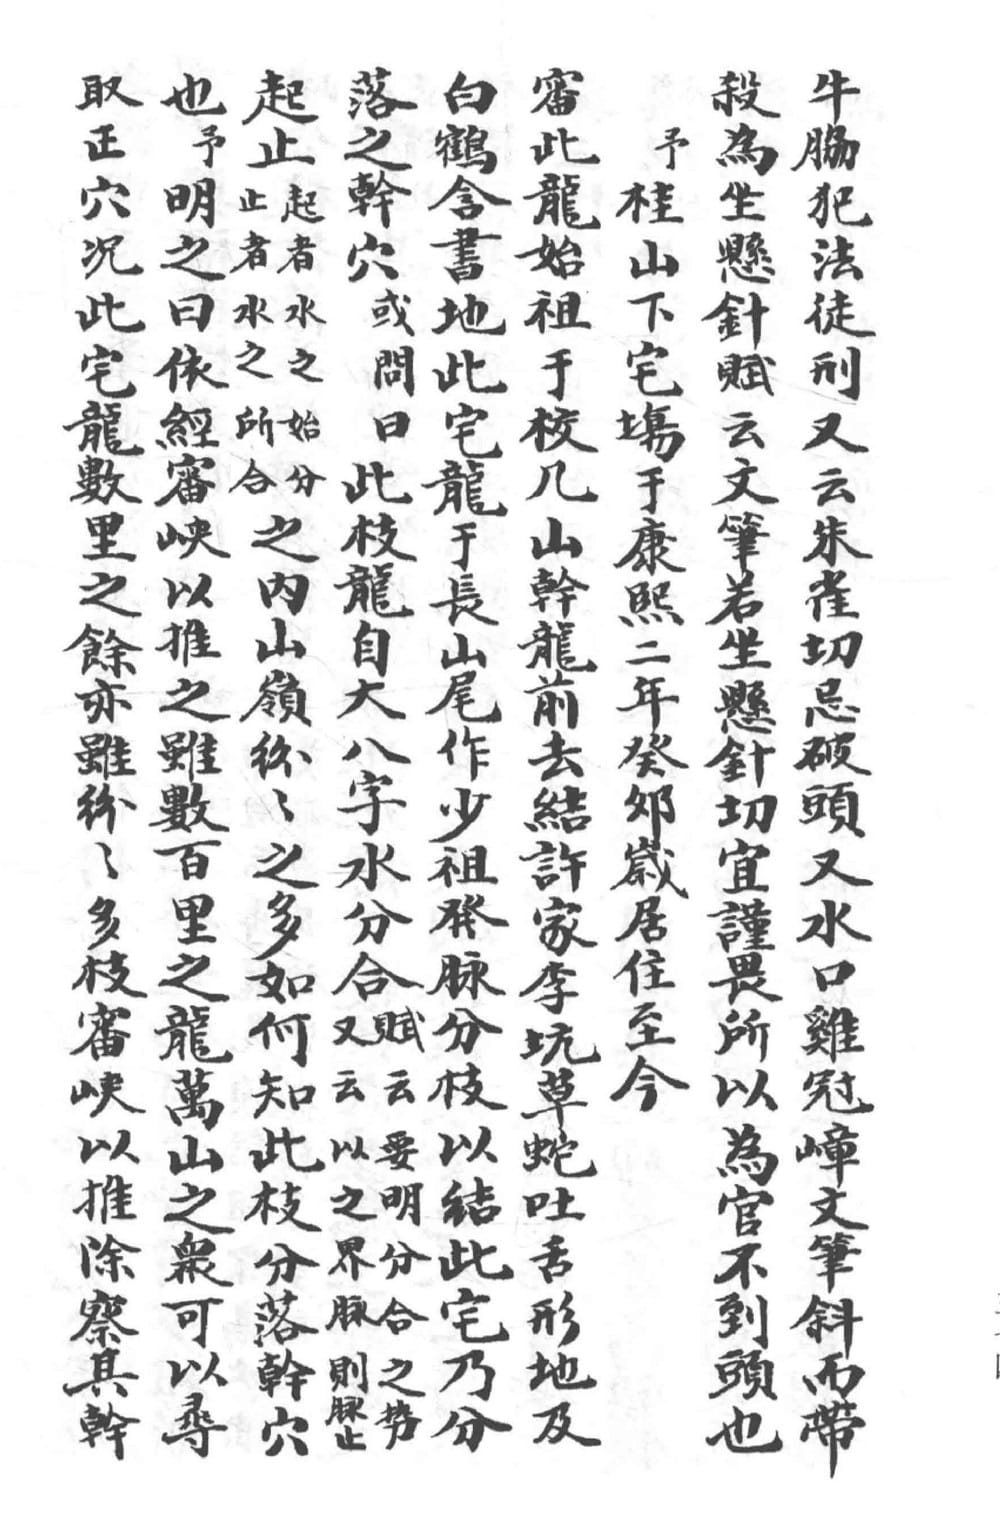 牛腸犯法徒刑又云朱雀切忌破頭又水口雞冠嶂文筆斜而帶
殺為坐懸針賦云文筆若坐懸針切宜謹畏所以為官不到頭也
予桂山下宅塲于康熙二年癸卯歲居住至今
審此龍始祖于校几山幹龍前去結許家李坑草蛇吐舌形地及
白鶴含書地此宅龍于長山尾作少祖發脉分枝以結此宅乃分
落之幹穴或問曰此枝龍自大八字水分合賦云要明分合之勢又云以之界脉則脉止
起止起者水之始分止者水之所合之内山嶺紛〻之多如何知此枝分落幹穴
也予明之曰依經審峽以推之雖數百里之龍萬山之衆可以尋
取正穴况此宅龍數里之餘亦雖紛〻多枝審峽以推除察其幹